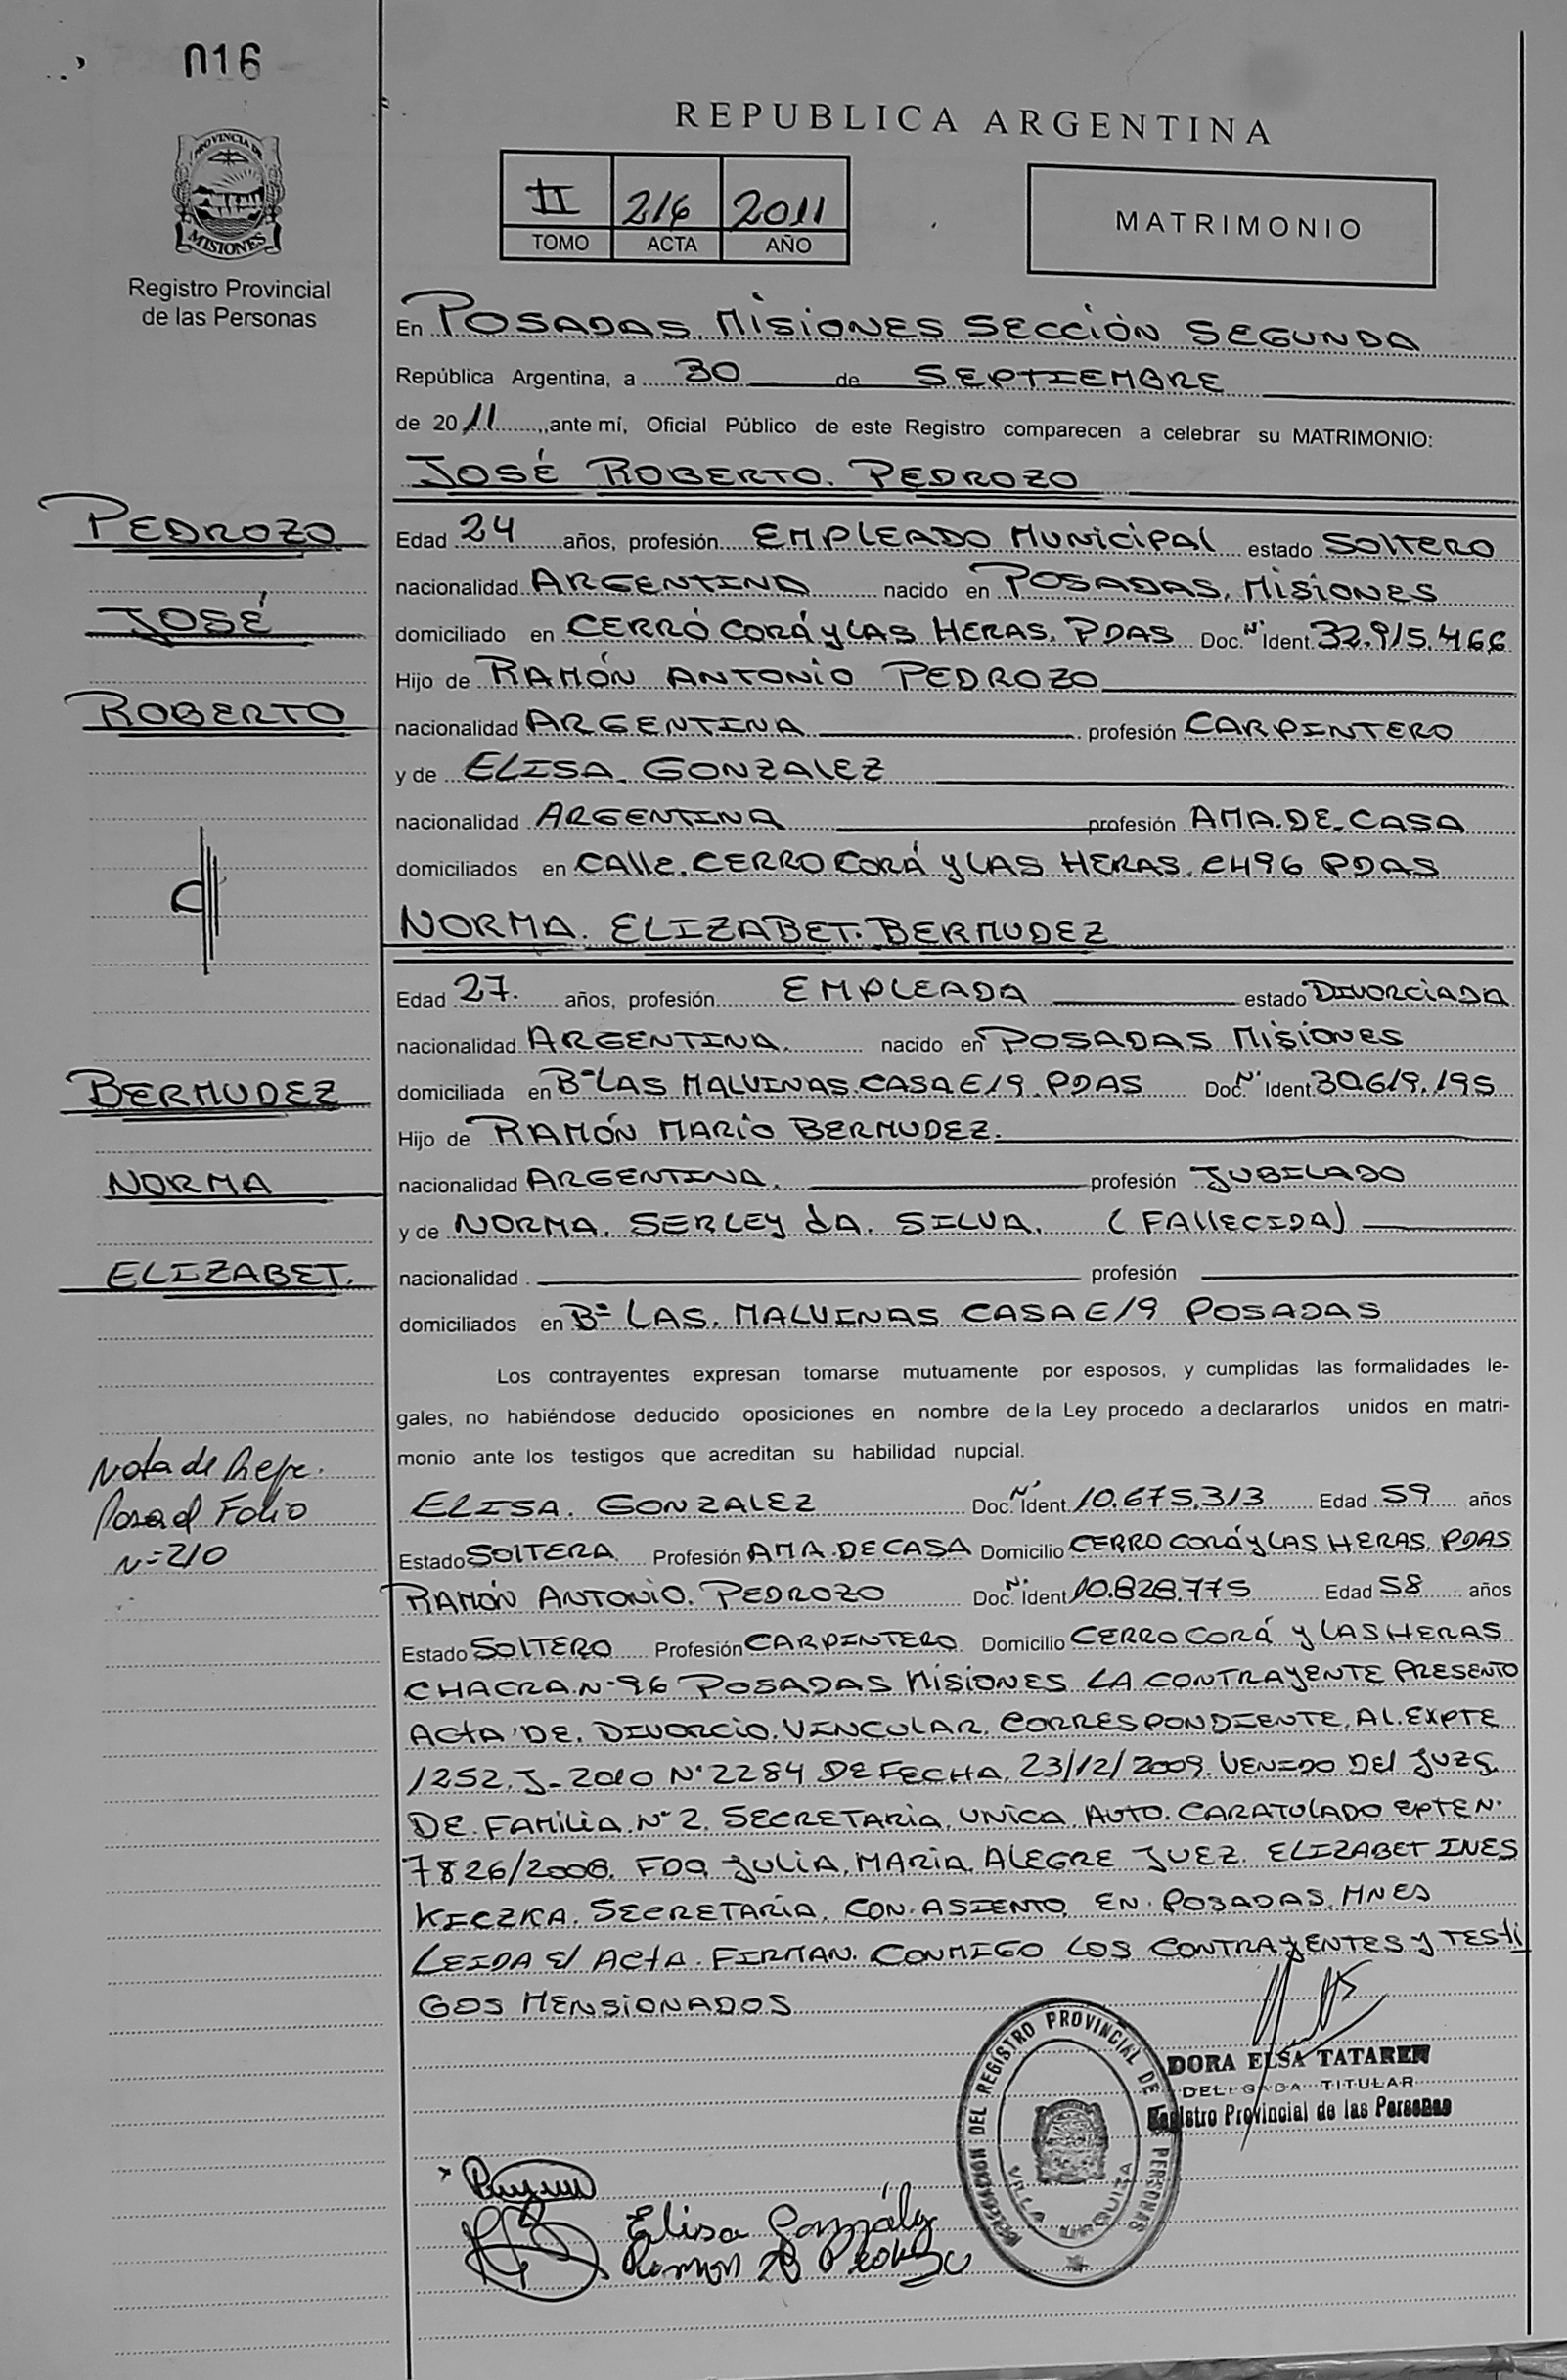 016
PROVINCIA DE
MISIONES
Registro Provincial
de las Personas
REPUBLICA ARGENTINA
II 216 2011
TOMO ACTA AÑO
MATRIMONIO
En POSADAS MISIONES SECCIÓN SEGUNDA
República Argentina, a 30 de SEPTIEMBRE
de 2011, ante mí, Oficial Público de este Registro comparecen a celebrar su MATRIMONIO:
JOSÉ ROBERTO. PEDROZO
PEDROZO
JOSÉ
ROBERTO
Edad 24 años, profesión EMPLEADO MUNICIPAL estado SOLTERO
nacionalidad ARGENTINA nacido en POSADAS, MISIONES
domiciliado en CERRÓ CORÁ Y LAS HERAS. PDAS Doc. N° Ident. 32.915.466
Hijo de RAMÓN ANTONIO PEDROZO
nacionalidad ARGENTINA profesión CARPINTERO
y de ELISA GONZALEZ
nacionalidad ARGENTINA profesión AMA.DE CASA
domiciliados en CALLE. CERRO CORÁ Y LAS HERAS. CH96 PDAS
NORMA. ELIZABET. BERMUDEZ
BERMUDEZ
NORMA
ELIZABET.
Edad 27. años, profesión EMPLEADA estado DIVORCIADA
nacionalidad ARGENTINA. nacido en POSADAS MISIONES
domiciliada en B° LAS MALVINAS. CASA E/9. PDAS Doc. N° Ident. 30.619.195
Hijo de RAMÓN MARIO BERMUDEZ.
nacionalidad ARGENTINA. profesión JUBILADO
y de NORMA. SERLEY dA. SILVA. (FALLECIDA)
nacionalidad profesión
domiciliados en B° LAS. MALVINAS CASA E/9 POSADAS
Los contrayentes expresan tomarse mutuamente por esposos, y cumplidas las formalidades le-
gales, no habiéndose deducido oposiciones en nombre de la Ley procedo a declararlos unidos en matri-
monio ante los testigos que acreditan su habilidad nupcial.
Nota de Refe.
Pasa al Folio
N=210
ELISA. GONZALEZ Doc. N° Ident. 10.675.313 Edad 59 años
Estado SOLTERA Profesión AMA.DE CASA Domicilio CERRO CORÁ Y LAS HERAS. PDAS
RAMÓN ANTONIO. PEDROZO Doc. N° Ident. 10.828.775 Edad 58 años
Estado SOLTERO Profesión CARPINTERO Domicilio CERRO CORÁ Y LAS HERAS
CHACRA.N°96 POSADAS MISIONES LA CONTRAYENTE PRESENTO
ACTA DE. DIVORCIO. VINCULAR. CORRESPONDIENTE. AL. EXPTE
1252. J-2010 N°2284 DE FECHA. 23/12/2009. VENIDO DEL JUZG.
DE. FAMILIA. N°2. SECRETARIA. UNICA. AUTO. CARATULADO EPTE N°
7826/2008. FDO JULIA. MARIA. ALEGRE JUEZ. ELIZABET INES
KICZKA. SECRETARIA. CON. ASIENTO. EN. POSADAS. MNES
LEIDA E/ ACTA. FIRMAN. CONMIGO LOS CONTRAYENTES Y TESTI
GOS MENSIONADOS
DELEGACION DEL REGISTRO PROVINCIAL DE LAS PERSONAS
VILLA URQUIZA
DORA ELSA TATAREN
DELEGADA TITULAR
Registro Provincial de las Personas
Elisa González
Ramon A Pedrozo